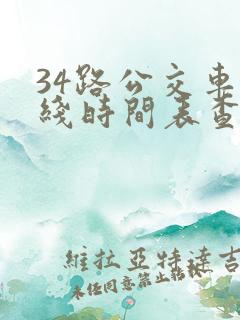 34路公交車
綫時間表查
維拉亞特達吉
未经同意禁止转载